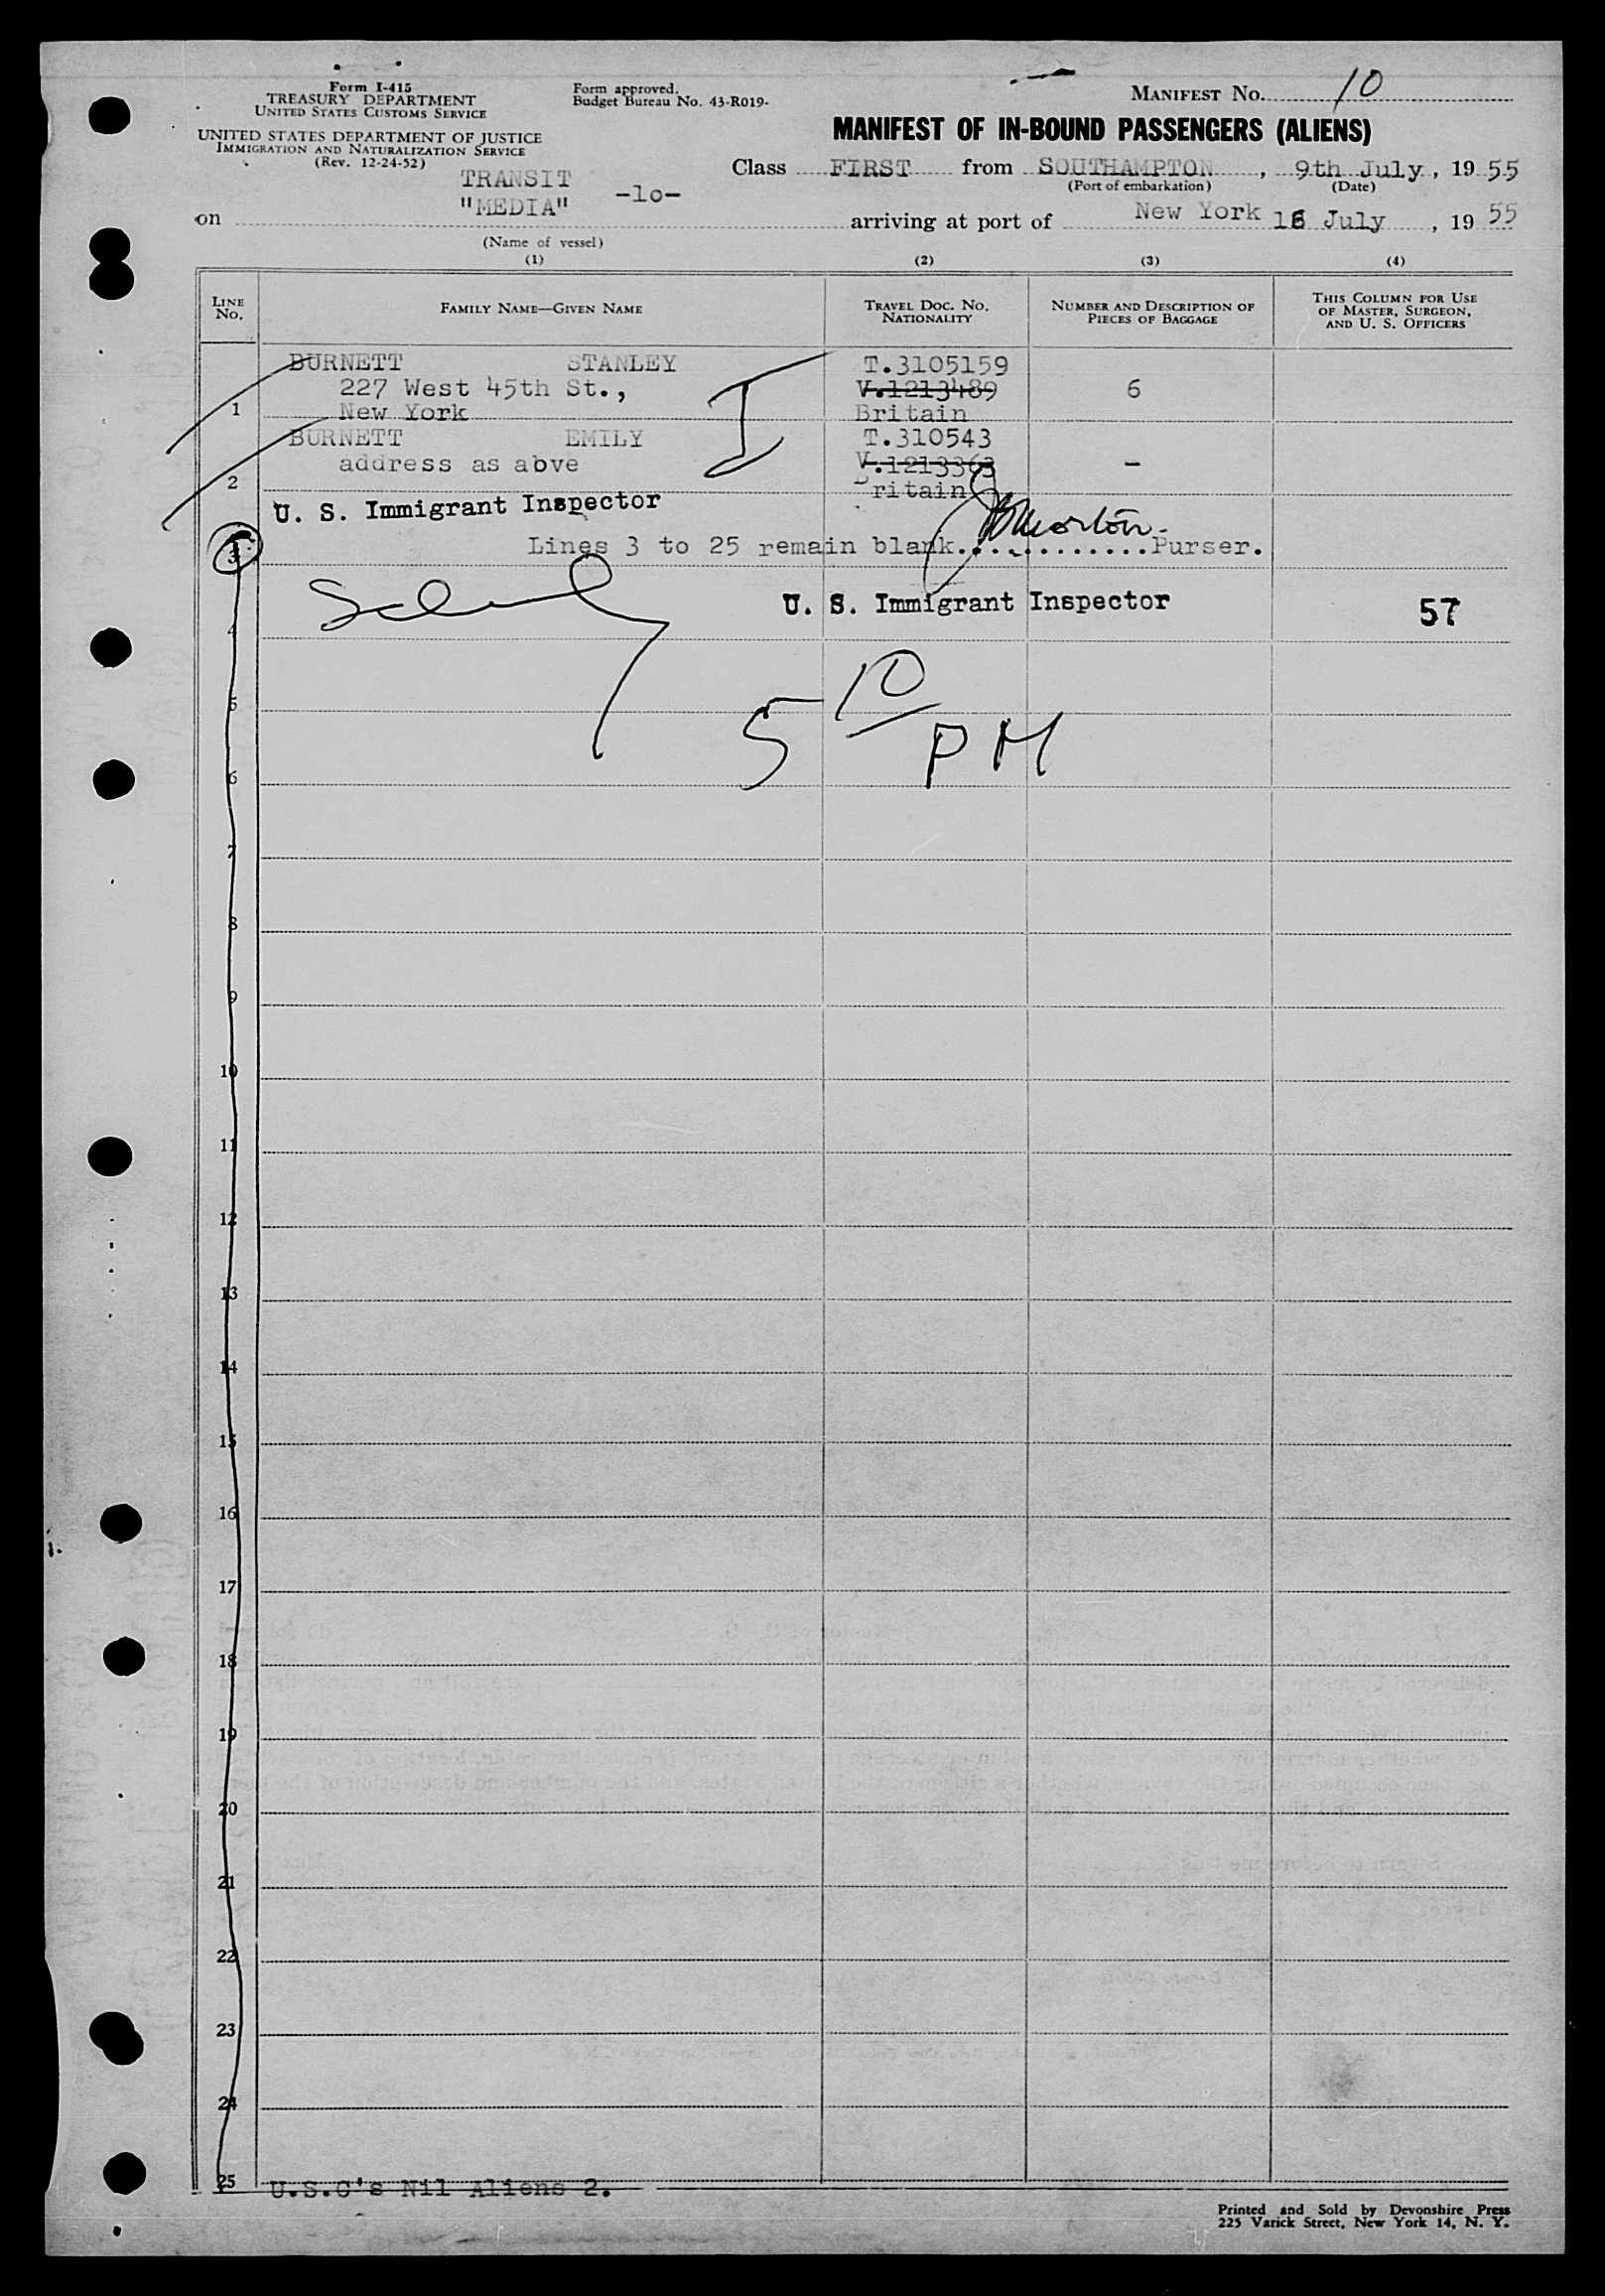 Form I-415
TREASURY DEPARTMENT
UNITED STATES CUSTOMS SERVICE
UNITED STATES DEPARTMENT OF JUSTICE
IMMIGRATION AND NATURALIZATION SERVICE
(Rev. 12-24-52)
Form approved.
Budget Bureau No. 43-R019-
MANIFEST No. 10
MANIFEST OF IN-BOUND PASSENGERS (ALIENS)
Class FIRST from SOUTHAMPTON, 9th July, 19 55
(Port of embarkation) (Date)
TRANSIT
-10-
on "MEDIA" arriving at port of New York 18 July, 19 55
(Name of vessel)
(1) (2) (3) (4)
LINE No. FAMILY NAME—GIVEN NAME TRAVEL DOC. No. NATIONALITY NUMBER AND DESCRIPTION OF PIECES OF BAGGAGE THIS COLUMN FOR USE OF MASTER, SURGEON, AND U. S. OFFICERS
BURNETT STANLEY T.3105159
227 West 45th St., V.1213489 6
1 New York Britain
BURNETT EMILY T.310543
address as abve V.1213363 -
2 ritain
I
U. S. Immigrant Inspector
3 Lines 3 to 25 remain blank.............Purser.
U. S. Immigrant Inspector 57
4
5 10 PM
5
6
7
8
9
10
11
12
13
14
15
16
17
18
19
20
21
22
23
24
25 U.S.C's Nil Aliens 2.
Printed and Sold by Devonshire Press
225 Varick Street, New York 14, N. Y.